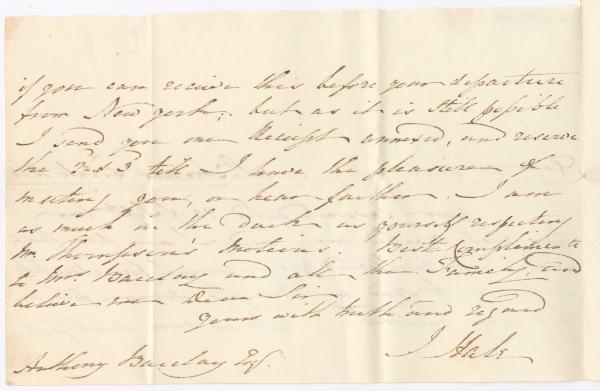 if you can receive this before your departure
from New york; but as it is still possible
I send you one Receipt annexed, and reserve
the 2 & 3 till I have the pleasure of
meeting you, or hear farther. I am
as much in the dark as yourself respecting
Mr Thompson's motions. Best Compliments
to Mrs Barclay and all the Family, and
believe me Dear Sir
yours with truth and regard
J Hale
Anthony Barclay Esqr.